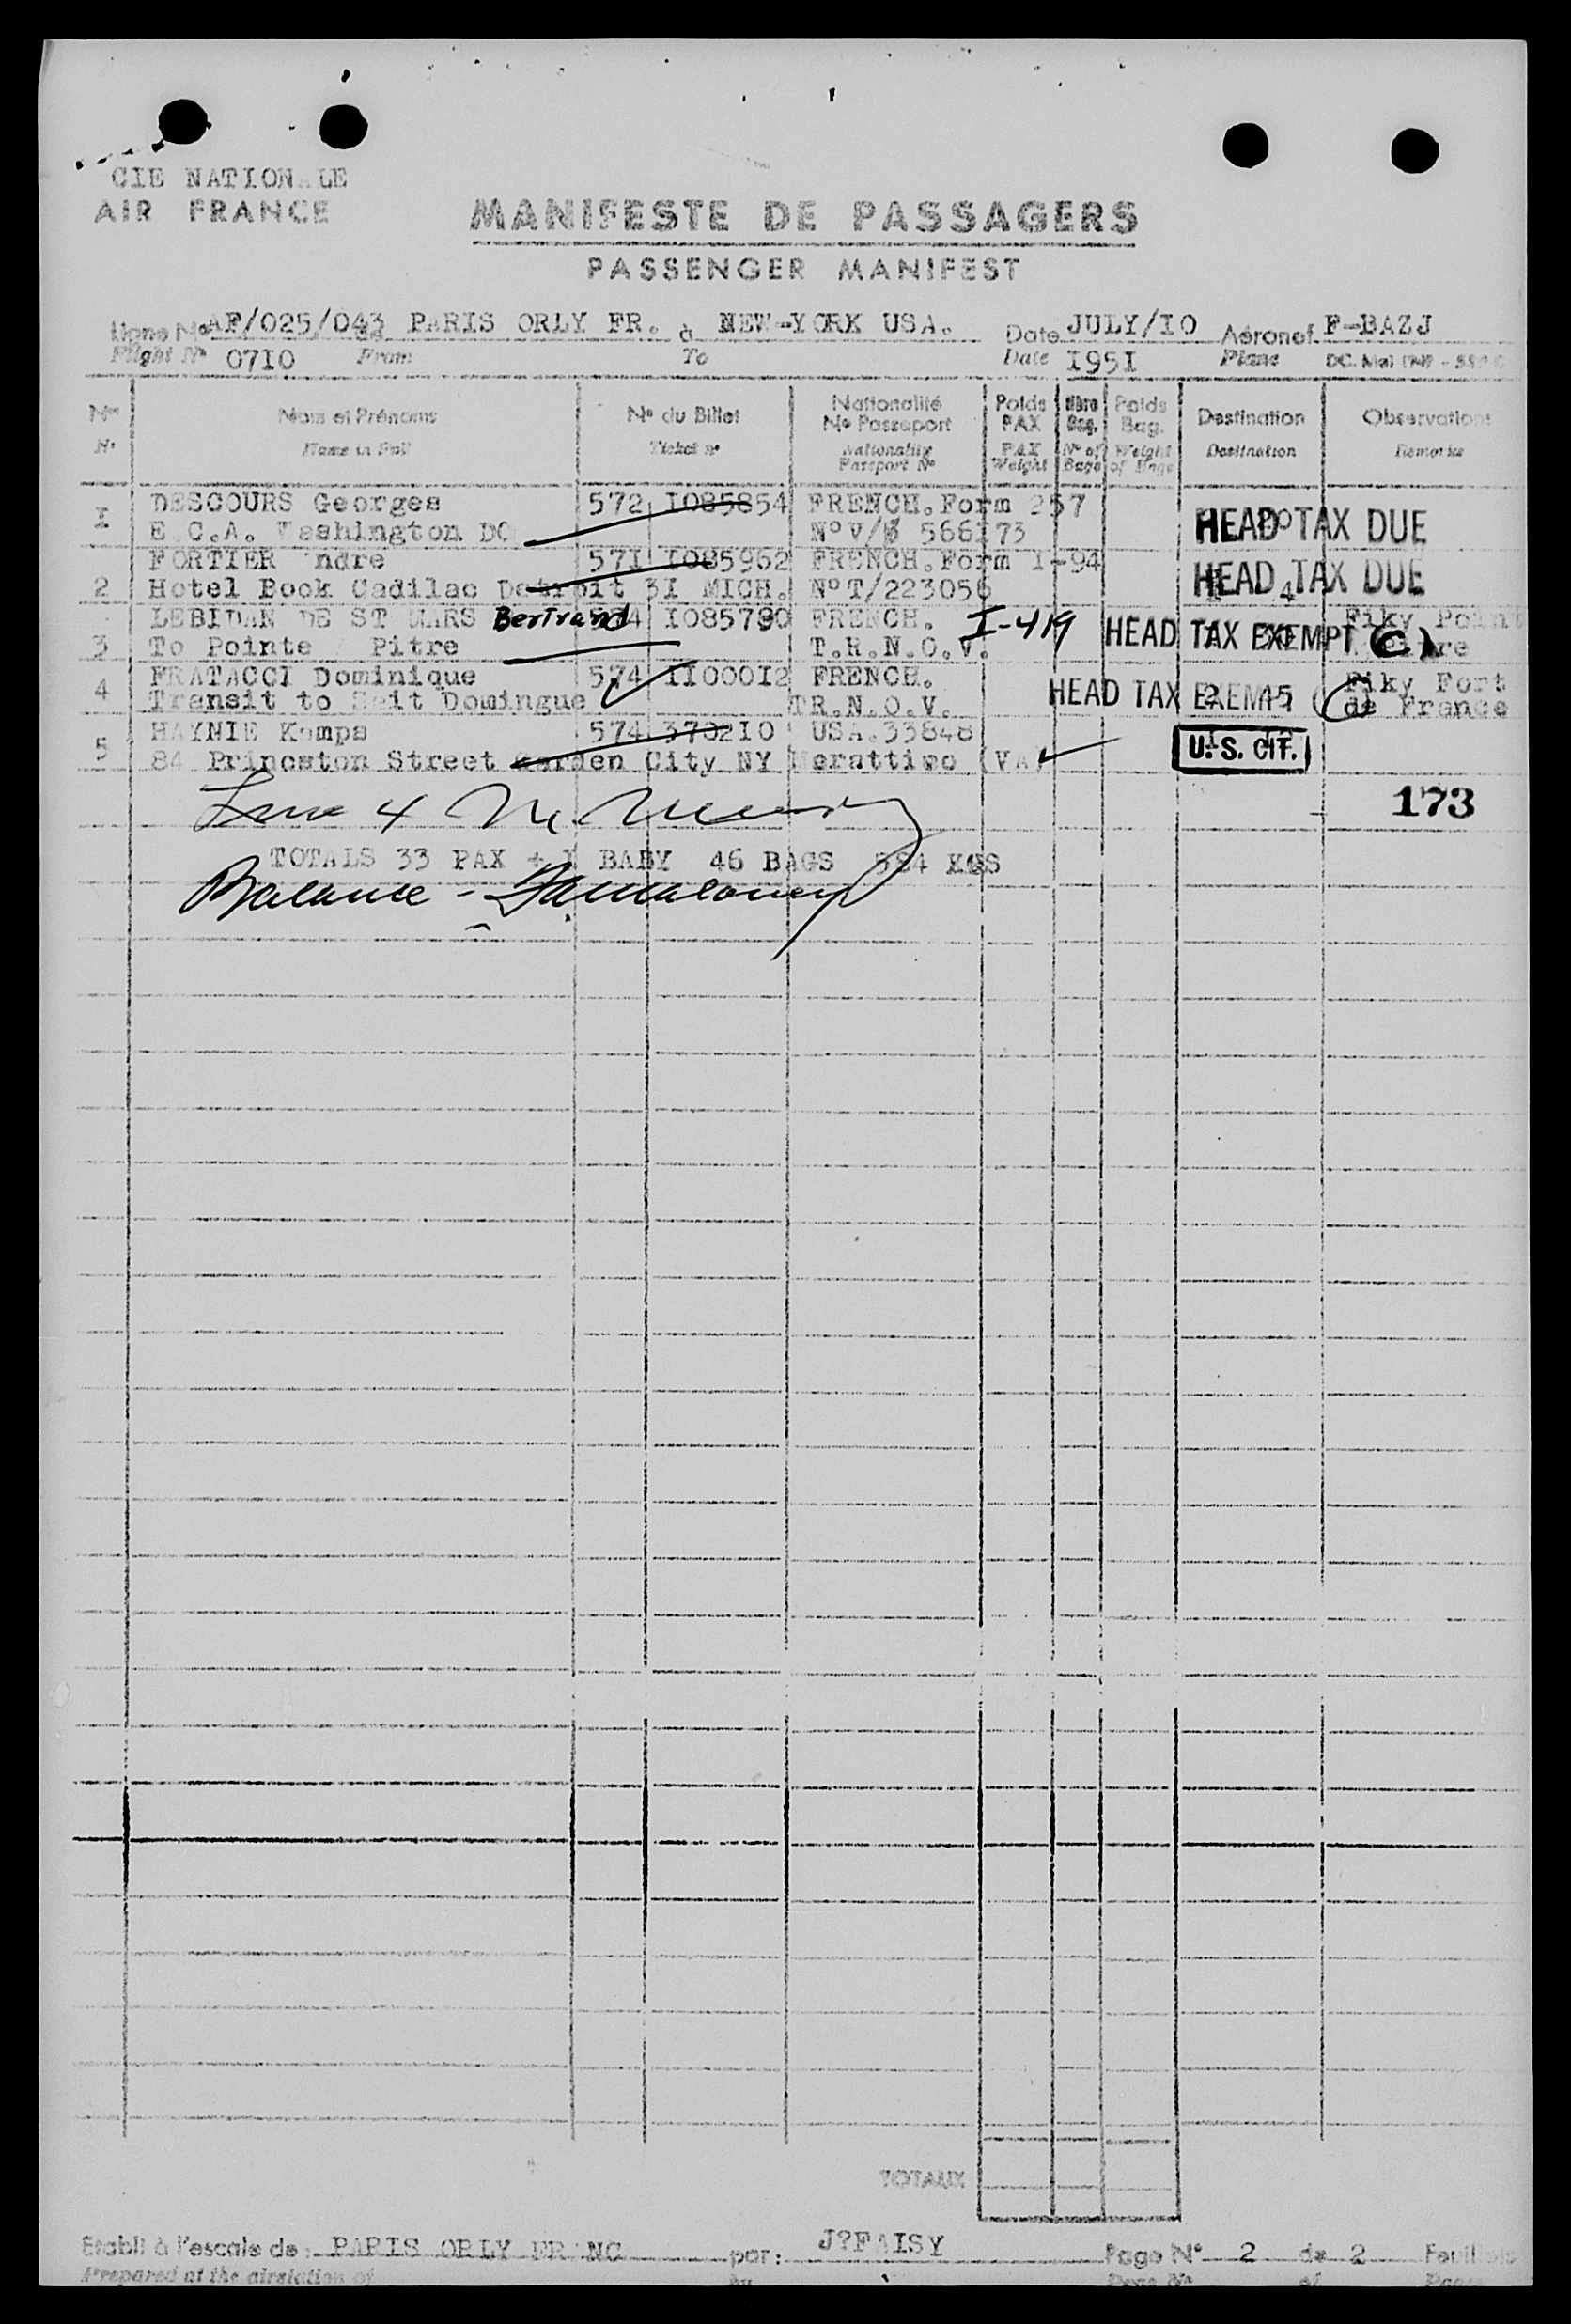 CIE NATIONALE
AIR FRANCE
MANIFESTE DE PASSAGERS
PASSENGER MANIFEST
Ligne No AF/025/043 de PARIS ORLY FR. à NEW-YORK USA. Date JULY/I0 Aéronef F-BAZJ
Flight No 07I0 From To Date I95I Plane
Nos Nom et Prénoms No du Billet Nationalité No Passeport Poids PAX Nbre Bag. Poids Bag. Destination Observations
No Name in Full Ticket no Nationality Passport No PAX Weight No of Bags Weight of Bags Destination Remarks
I DESCOURS Georges 572 I085854 FRENCH.Form 257
E.C.A. Washington DC No V/ 566I73 HEAD TAX DUE
FORTIER ndre 57I I085962 FRENCH.Form I-94
2 Hotel Book Cadilac Detroit 3I MICH. NoT/223056 HEAD TAX DUE
LEBIDAN DE ST MARS Bertrand 574 I085790 FRENCH. I-419 HEAD TAX EXEMPT Fiky Point
3 To Pointe Pitre T.R.N.O.V.
FRATACCI Dominique 574 II000I2 FRENCH. HEAD TAX EXEMPT Fiky Fort
4 Transit to Seit Domingue TR.N.O.V. de France
HAYNIE Kemps 574 3702I0 USA.33848 U.S. CIT.
5 84 Princeston Street Garden City NY (VA)
173
TOTALS 33 PAX + I BABY 46 BAGS 584 KGS
Balance -
TOTAUX
Etabli à l'escale de: PARIS ORLY FR NC par: J?FAISY Page No 2 de 2
Prepared at the airstation of by